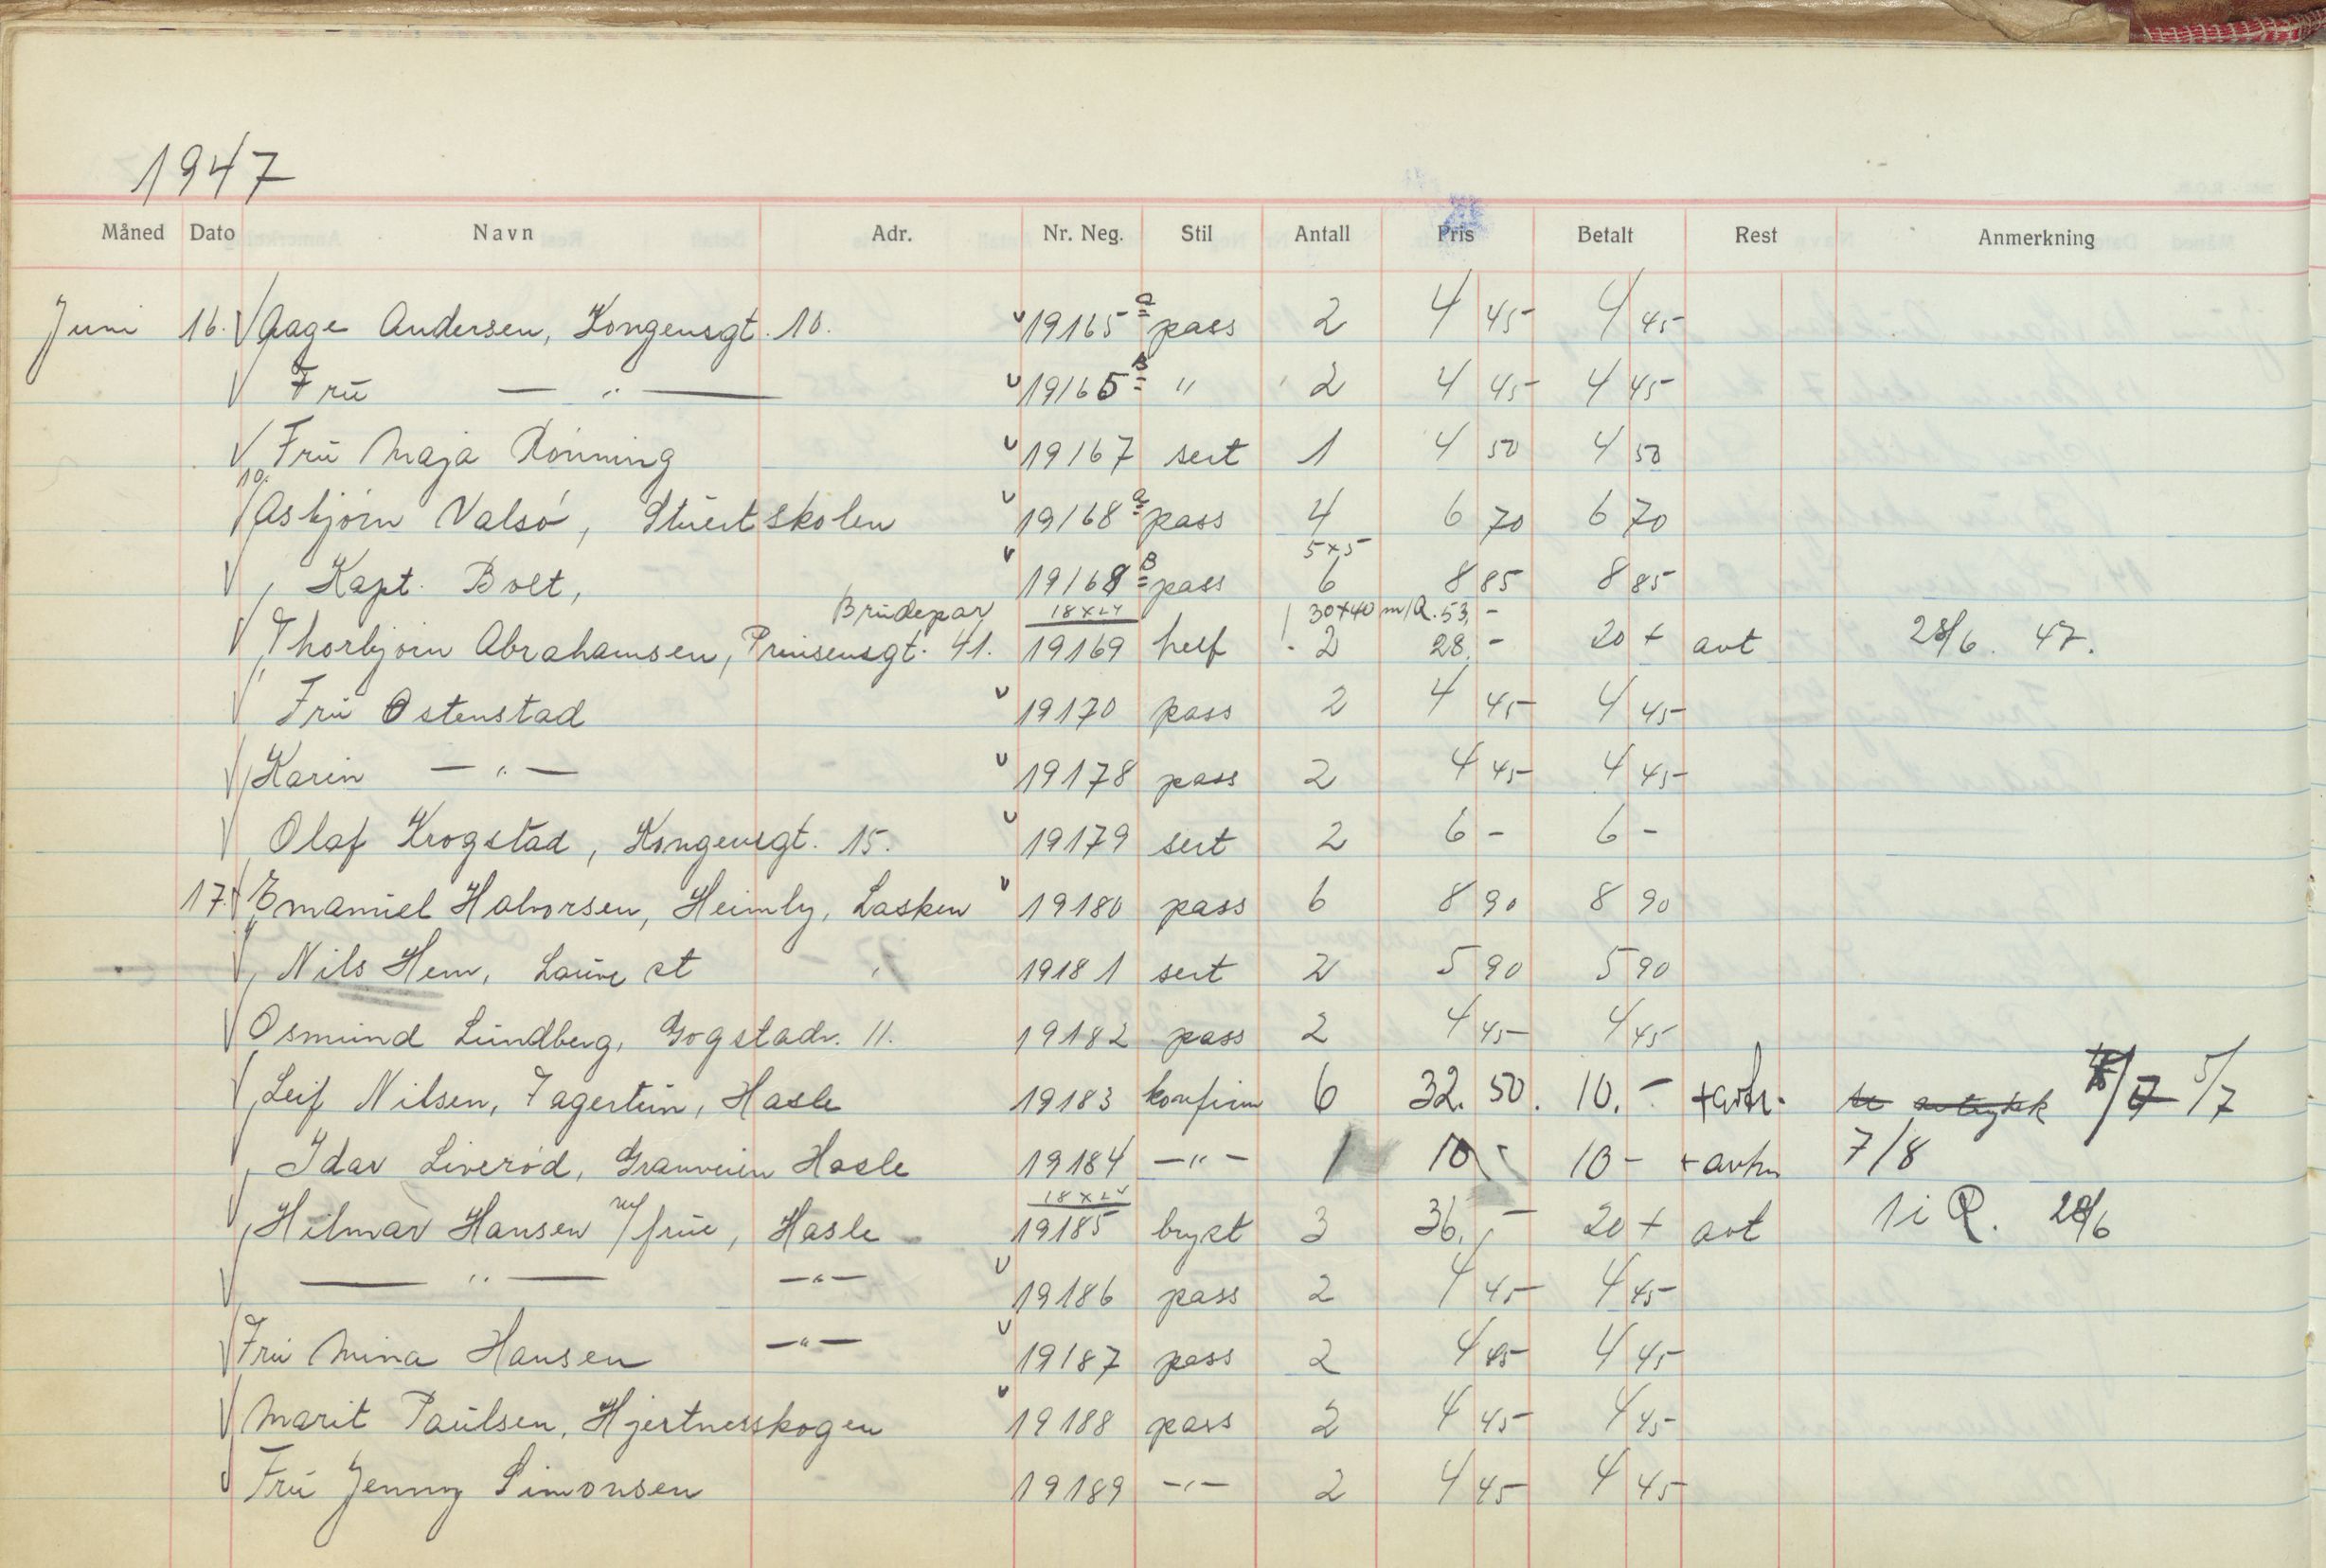 1947
Måned Dato Navn Adr. Nr. Neg. Stil Antall Pris Betalt Rest Anmerkning
Juni 16. Aage Andersen, Kongensgt. 10. 19165 a pass 2 4 45 4 45
Frü — " — 19165 B " 2 4 45 4 45
Frü Maja Rönning 19167 sert 1 4 50 4 50
10.
Asbjörn Valsö, Stüertskolen 19168 a pass 4 6 70 6 70
5x5
Kapt. Boet, 19168 B pass 6 8 85 8 85
Brüdepar 18x24 1 30x40 m/R. 53,-
Thorbjörn Abrahamsen, Prinsensgt. 41. 19169 helf 2 28,- 20 + avt 28/6. 47.
Frü Ostenstad 19170 pass 2 4 45 4 45
Karin — " — 19178 pass 2 4 45 4 45
Olaf Krogstad, Kongensgt. 15. 19179 sert 2 6 - 6 -
17. Emanüel Halvorsen, Heimly, Lasken 19180 pass 6 8 90 8 90
Nils Hem, Laüve st 19181 sert 2 5 90 5 90
Osmünd Lündberg, Gogstadv. 11. 19182 pass 2 4 45 4 45
Leif Nilsen, Fagertün, Hasle 19183 konfirm 6 32. 50. 10. - 5/7
Idar Liveröd, Granveien Hasle 19184 — " - 1 10 - 10 - + avhn 7/8
18x24
Hilmar Hansen m/früe, Hasle 19185 brykt 3 36,- 20 + avt 1 i R. 28/6
— " — — " — 19186 pass 2 4 45 4 45
Frü Mina Hansen — " — 19187 pass 2 4 45 4 45
Marit Paülsen, Hjertnesskogen 19188 pass 2 4 45 4 45
Frü Jenny Simonsen 19189 — " — 2 4 45 4 45